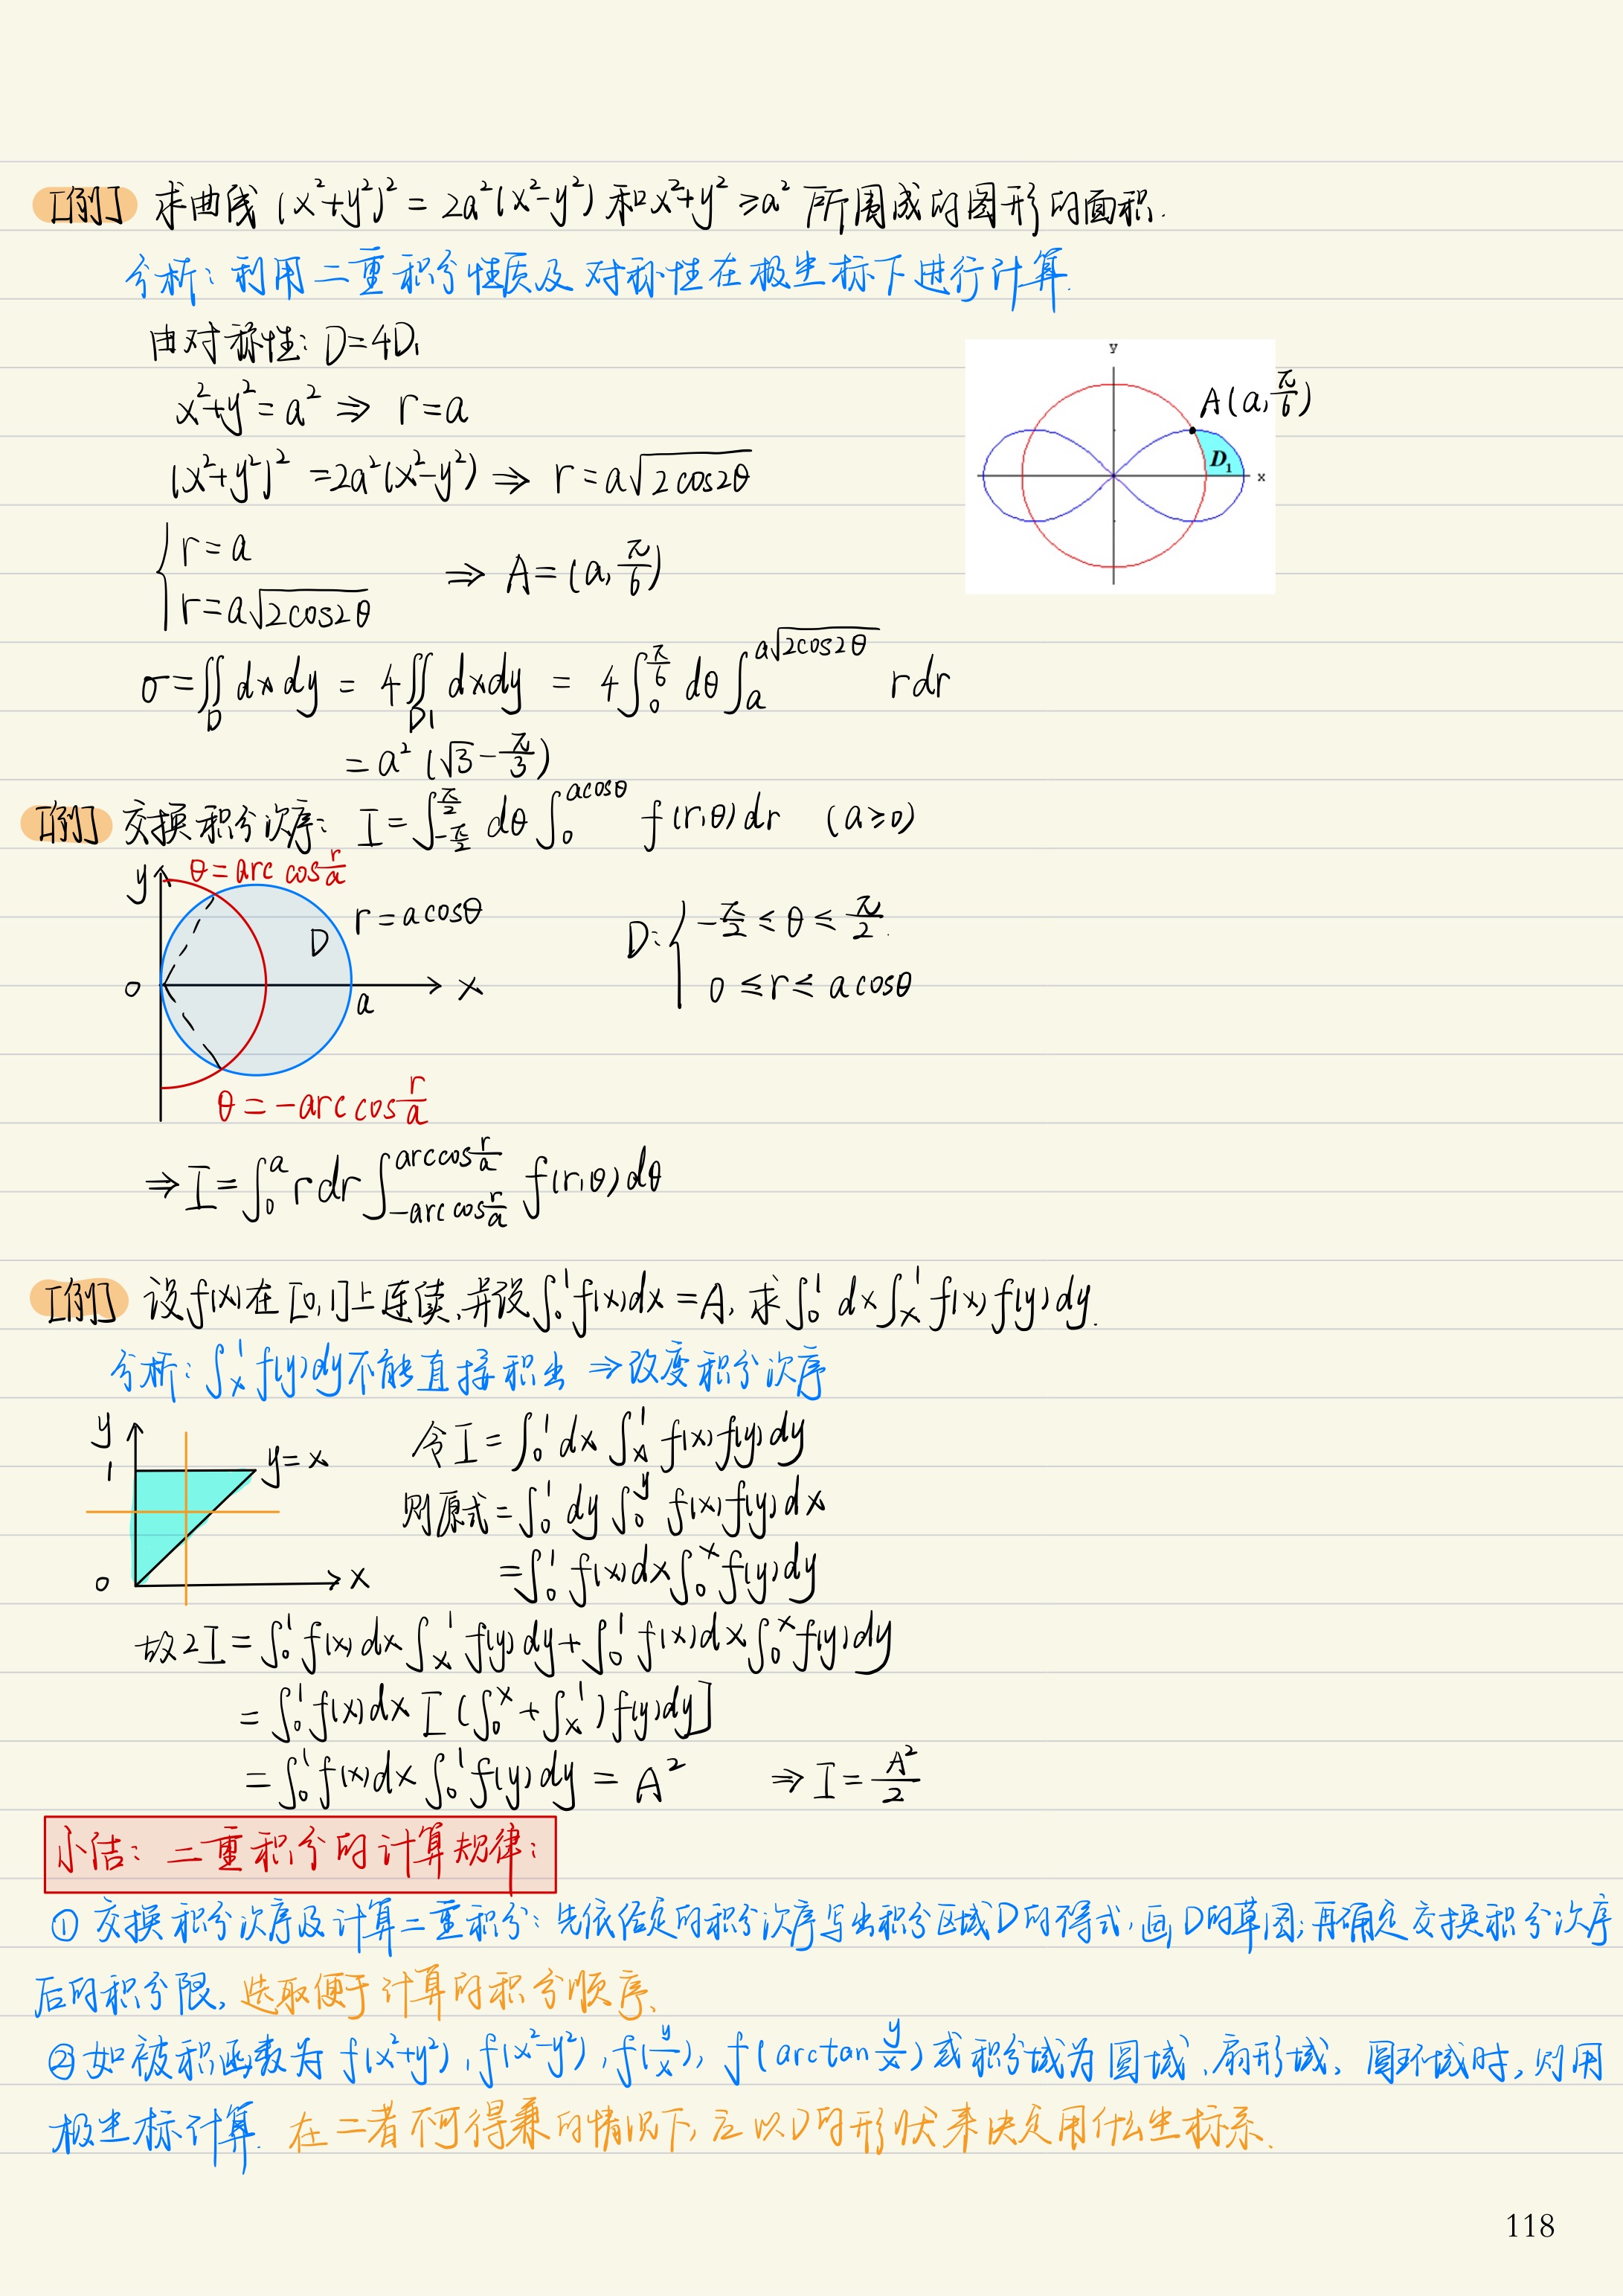 [例] 求曲线 (x²+y²)² = 2a²(x²-y²) 和 x²+y² ≥ a² 所围成的图形的面积.
分析: 利用二重积分性质及对称性在极坐标下进行计算.
由对称性: D=4D₁
x²+y² = a² ⇒ r=a
(x²+y²)² = 2a²(x²-y²) ⇒ r = a√(2cos2θ)
{ r=a
{ r=a√(2cos2θ) ⇒ A=(a, π/6)
y
A(a, π/6)
D₁
x
σ = ∬_D dxdy = 4∬_{D1} dxdy = 4∫_0^{π/6} dθ ∫_a^{a√(2cos2θ)} rdr
= a²(√3 - π/3)
[例] 交换积分次序: I = ∫_{-π/2}^{π/2} dθ ∫_0^{acosθ} f(r,θ)dr (a≥0)
y θ = arc cos r/a
r = acosθ
D
D: { -π/2 ≤ θ ≤ π/2.
0 ≤ r ≤ acosθ
o a x
θ = -arc cos r/a
⇒ I = ∫_0^a rdr ∫_{-arc cos r/a}^{arc cos r/a} f(r,θ)dθ
[例] 设f(x)在[0,1]上连续,并设∫_0^1 f(x)dx = A, 求∫_0^1 dx∫_x^1 f(x)f(y)dy.
分析: ∫_x^1 f(y)dy不能直接积出 ⇒ 改变积分次序
y
1
y=x
o x
令 I = ∫_0^1 dx ∫_x^1 f(x)f(y)dy
则原式 = ∫_0^1 dy ∫_0^y f(x)f(y)dx
= ∫_0^1 f(x)dx ∫_0^x f(y)dy
故 2I = ∫_0^1 f(x)dx ∫_x^1 f(y)dy + ∫_0^1 f(x)dx ∫_0^x f(y)dy
= ∫_0^1 f(x)dx [(∫_0^x + ∫_x^1) f(y)dy]
= ∫_0^1 f(x)dx ∫_0^1 f(y)dy = A² ⇒ I = A²/2
小结: 二重积分的计算规律:
① 交换积分次序及计算二重积分: 先依给定的积分次序写出积分区域D的不等式, 画D的草图; 再确定交换积分次序
后的积分限, 选取便于计算的积分顺序、
② 如被积函数为 f(x²+y²), f(x²-y²), f(y/x), f(arctan y/x) 或积分域为圆域、扇形域、圆环域时, 则用
极坐标计算. 在二者不可得兼的情况下, 应以D的形状来决定用什么坐标系.
118